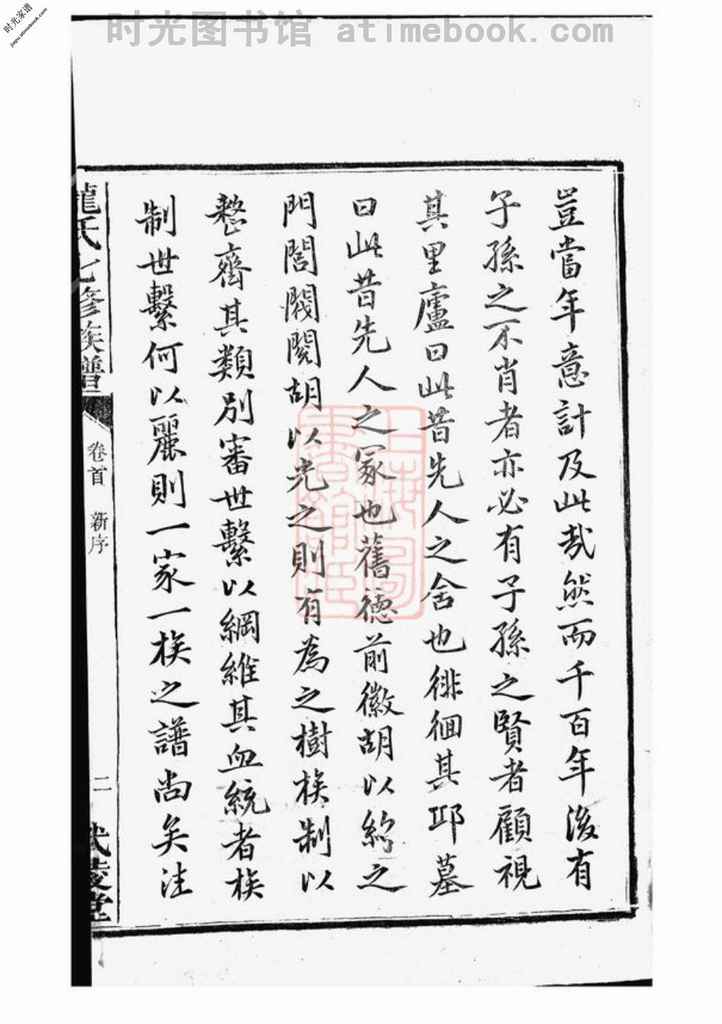 时光图书馆 atimebook.com
时光家谱
jiapu.atimebook.com
豈當年意計及此哉然而千百年後有
子孫之不肖者亦必有子孫之賢者顧視
其里廬曰此昔先人之舍也徘徊其邛墓
曰此昔先人之冢也舊德前徽胡以紹之
門閭閥閱胡以光之則有為之樹族制以
整齊其類別審世繫以綱維其血統者族
制世繫何以麗則一家一族之譜尚矣注
龍氏七修族譜
卷首 新序
二
武陵堂